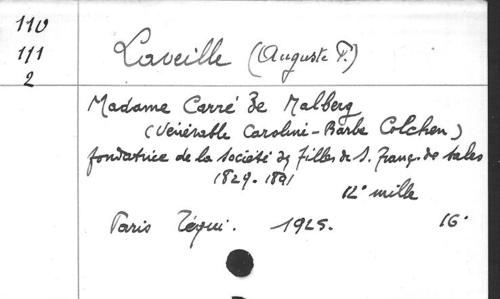 110
111
2
Laveille (Auguste P.)
Madame Carré de Malberg
(Vénérable Caroline-Barbe Colchen)
fondatrice de la Société des Filles de S. Franç. de Sales
1829-1891
12° mille
Paris Téqui. 1925. 16°